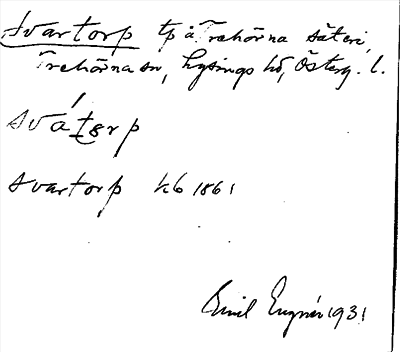 Svartorp tp å Trehörna säteri,
Trehörna sn, Lysings hd, Österg. l.
svátərp
Svartorp kb 1861
Emil Engnér 1931